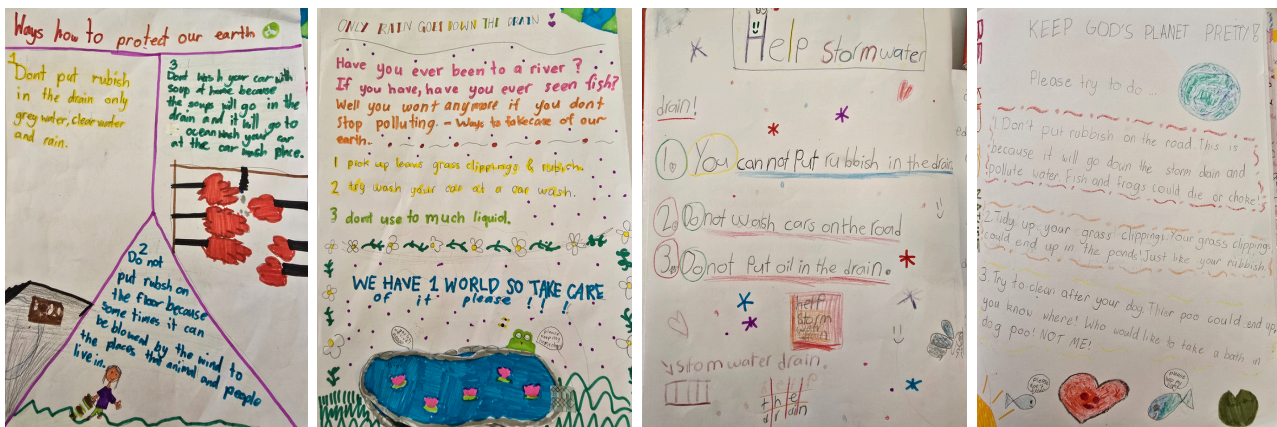 Ways how to protect our earth
1
Dont put rubish
in the drain only
grey water, clear water
and rain.
3
Dont wash your car with
soup at home because
the soups will go in the
drain and it will go to
ocean wash your car
at the car wash place.
2
Do not
put rubsh on
the floor because
some times it can
be blowed by the wind to
the places that animal and people
live in.
ONLY RAIN GOES DOWN THE DRAIN
Have you ever been to a river?
If you have, have you ever seen fish?
Well you wont anymore if you dont
Stop polluting. - Ways to take care of our
earth.
1 pick up leavs grass clippings & rubish.
2 try wash your car at a car wash.
3 dont use to much liquid.
WE HAVE 1 WORLD SO TAKE CARE
of it please !!!
Help stormwater
drain!
1. You can not put rubbish in the drain
2. Do not wash cars on the road
3. Do not put oil in the drain.
help
storm
water
stormwater drain.
the
drain
KEEP GOD'S PLANET PRETTY!
Please try to do ...
1 Don't put rubbish on the road. This is
because it will go down the storm drain and
pollute water. Fish and frogs could die or choke!
2. Tidy up your grass clippings. Your grass clippings
could end up in the ponds! Just like your rubbish.
3. Try to clean after your dog. Thier poo could end up
you know where! Who would like to take a bath in
dog poo! NOT ME!
please